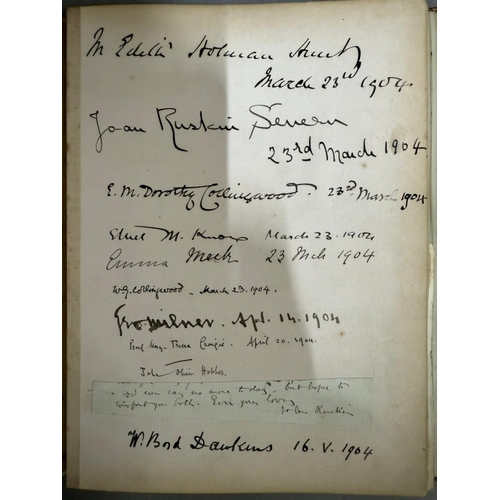 M Edith Holman Hunt
March 23rd 1904
Joan Ruskin Severn
23rd March 1904.
E. M. Dorothy Collingwood. 23rd March 1904
Ethel M. Knox March 23. 1904
Emma Meek 23 Mch 1904
W.G. Collingwood. March 23. 1904.
Geo Milner. Apl. 14. 1904.
Pearl Mary Teresa Craigie. April 20. 1904.
John Oliver Hobbes.
can say no more today. but hope to
comfort you both. Ever your loving
John Ruskin
W. Boyd Dawkins 16. V. 1904